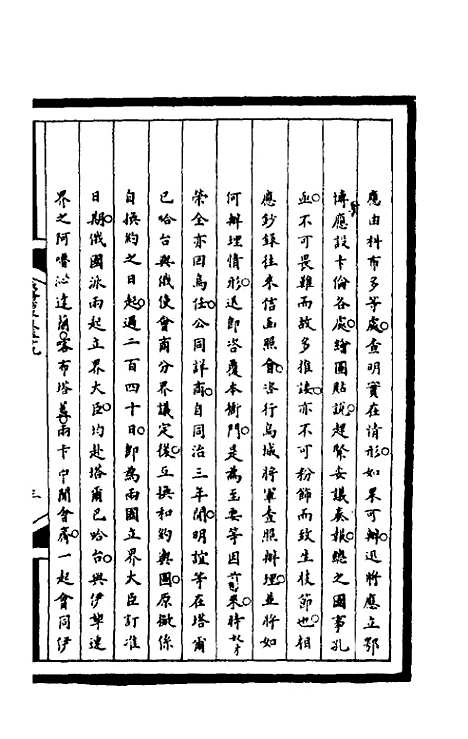 應由科布多等處查明實在情形如果可辦迅將應立鄂
博應設卡倫各處繪圖貼說趕緊妥議奏報總之國事孔
亟不可畏難而故多推諉亦不可粉飾而致生枝節也相
應鈔錄往來信函照會咨行烏城將軍查照辦理並將如
何辦理情形迅即咨覆本衙門是為至要等因前來時奴才
榮全亦回烏任公同詳商自同治三年間明誼等在塔爾
巴哈台與俄使會商分界議定後互換和約輿圖原擬係
自換約之日起過二百四十日即為兩國立界大臣訂准
日期俄國派兩起立界大臣均赴塔爾巴哈台與伊犁連
界之阿嚕沁達蘭喀布塔蓋兩卡中間會齊一起會同伊
三